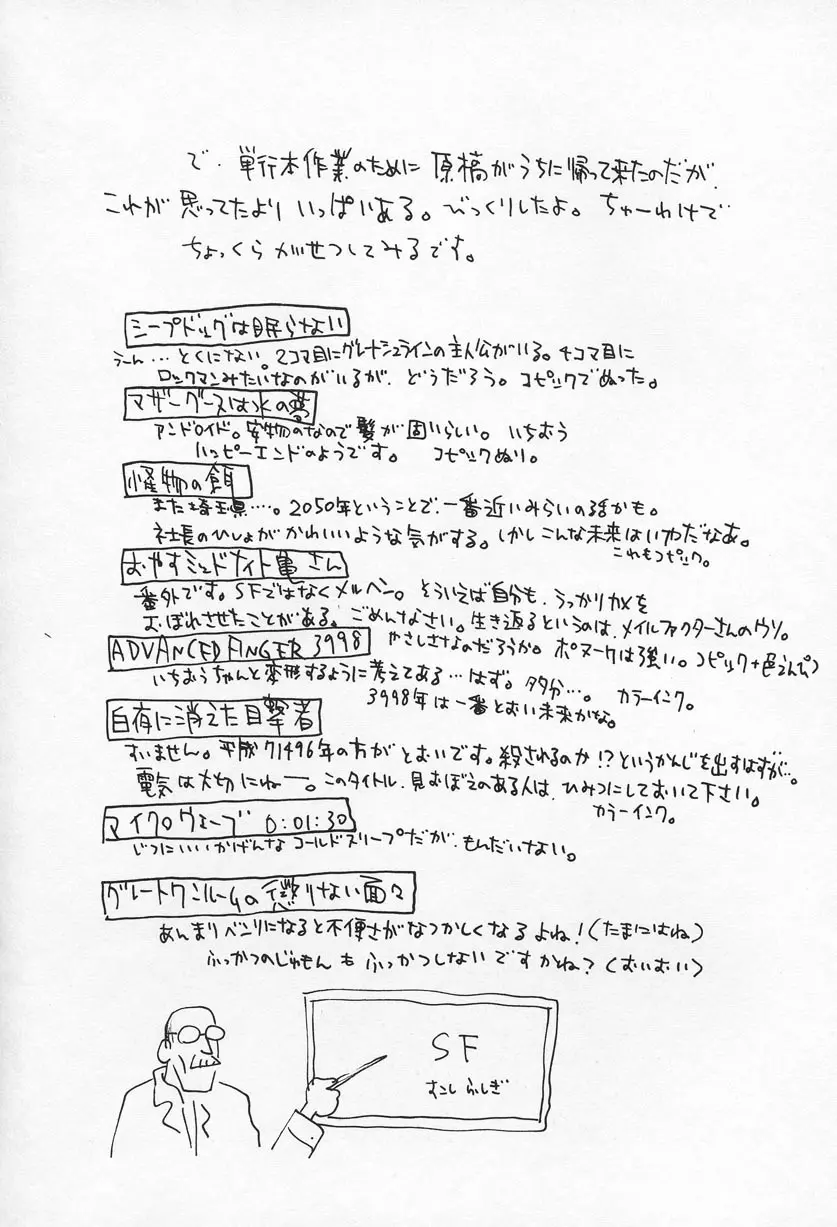 で、単行本作業のために 原稿がうちに帰って来たのだが、
これが 思ってたより いっぱいある。びっくりしたよ。ちゅーわけで
ちょっくら かいせつしてみるです。
シープドッグは眠らない
うーん…とくにない。2コマ目にグレートシュラインの主人公がいる。4コマ目に
ロックマンみたいなのがいるが、どうだろう。コピックでぬった。
マザーグースは氷の夢
アンドロイド。安物のなので髪が固いらしい。いちおう
ハッピーエンドのようです。 コピックぬり。
怪物の餌
また埼玉県…。2050年ということで、一番近いみらいの話かも。
社長のひしょがかわいいような気がする。しかしこんな未来はいやだなあ。
これもコピック。
おやすミッドナイト亀さん
番外です。SFではなくメルヘン。そういえば自分も、うっかりカメを
おぼれさせたことがある。ごめんなさい。生き返るというのは、メイルファクターさんのウソ。
やさしさなのだろうか。ボヌークは強い。コピック+色えんぴつ
ADVANCED FINGER 3998
いちおうちゃんと変形するように考えてある…はず。多分…。 カラーインク。
3998年は一番とおい未来かな。
白夜に消えた目撃者
すいません。平成71496年の方がとおいです。殺されるのか!?というかんじを出すはずが…。
電気は大切にねー。このタイトル、見おぼえのある人は、ひみつにしておいて下さい。
カラーインク。
マイクロウェーブ 0:01:30
じつにいいかげんなコールドスリープだが、もんだいない。
グレートワンルームの懲りない面々
あんまりベンリになると不便さがなつかしくなるよね!(たまにはね)
ふっかつのじゅもんもふっかつしないですかね?(おいおい)
SF
すこし ふしぎ